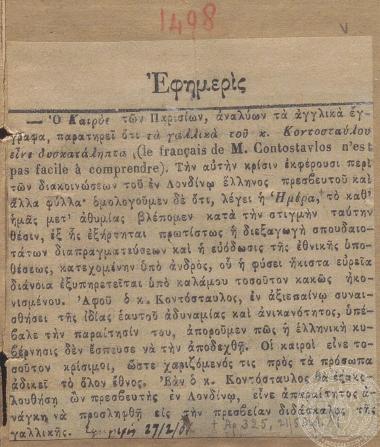 1498
Ἐφημερὶς
— Ὁ Καιρὸς τῶν Παρισίων, ἀναλύων τὰ ἀγγλικὰ ἔγ-
γραφα, παρατηρεῖ ὅτι τὰ γαλλικὰ τοῦ κ. Κοντοσταύλου
εἶνε δυσκατάληπτα, (le français de M. Contostavlos n'est
pas facile à comprendre). Τὴν αὐτὴν κρίσιν ἐκφέρουσι περὶ
τῶν διακοινώσεων τοῦ ἐν Λονδίνῳ ἕλληνος πρεσβευτοῦ καὶ
ἄλλα φύλλα· ὁμολογοῦμεν δὲ ὅτι, λέγει ἡ Ἡμέρα, τὸ καθ'
ἡμᾶς μετ' ἀθυμίας βλέπομεν κατὰ τὴν στιγμὴν ταύτην
θέσιν, ἐξ ἧς ἐξήρτηται πρωτίστως ἡ διεξαγωγὴ σπουδαιο-
τάτων διαπραγματεύσεων καὶ ἡ εὐόδωσις τῆς ἐθνικῆς ὑπο-
θέσεως, κατεχομένην ὑπὸ ἀνδρὸς, οὗ ἡ φύσει ἥκιστα εὐρεῖα
διάνοια ἐξυπηρετεῖται ὑπὸ καλάμου τοσοῦτον κακῶς ἠκο-
νισμένου. Ἀφοῦ ὁ κ. Κοντόσταυλος, ἐν ἀξιεπαίνῳ συναι-
σθήσει τῆς ἰδίας ἑαυτοῦ ἀδυναμίας καὶ ἀνικανότητος, ὑπέ-
βαλε τὴν παραίτησίν του, ἀποροῦμεν πῶς ἡ ἑλληνικὴ κυ-
βέρνησις δὲν ἔσπευσε νὰ τὴν ἀποδεχθῇ. Οἱ καιροὶ εἶνε το-
σοῦτον κρίσιμοι, ὥστε χαριζόμενός τις πρὸς τὰ πρόσωπα
ἀδικεῖ τὸ ὅλον ἔθνος. Ἐὰν ὁ κ. Κοντόσταυλος θὰ ἐξακο-
λουθήσῃ ὢν πρεσβευτὴς ἐν Λονδίνῳ, εἶνε ἀπαραίτητος ἀ-
νάγκη νὰ προσληφθῇ εἰς τὴν πρεσβείαν διδάσκαλος τῆς
γαλλικῆς. 27/2/81